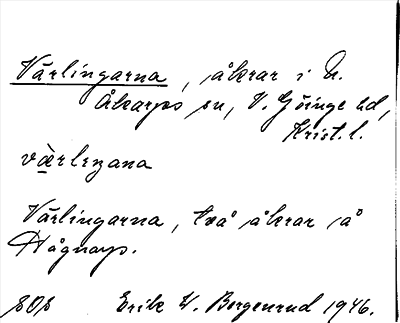 Vårlingarna, åkrar i N.
Åkarps sn, V. Göinge hd,
Krist. l.
Vårlingarna, två åkrar å
Hågnarp.
SOS Erik W. Borgenrud 1946.